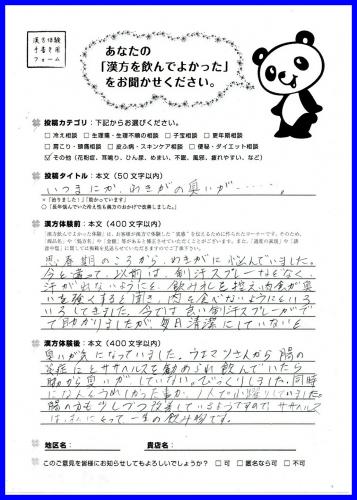 漢方体験
手書き用
フォーム
あなたの
「漢方を飲んでよかった」
をお聞かせください。
投稿カテゴリ：下記からお選びください。
□ 冷え相談 □ 生理痛・生理不順の相談 □ 子宝相談 □ 更年期相談
□ 肩こり・頭痛相談 □ 皮ふ病・スキンケア相談 □ 便秘・ダイエット相談
☑ その他（花粉症、耳鳴り、ひん尿、めまい、不眠、風邪、疲れやすい、など）
投稿タイトル：本文（50 文字以内）
いつまにか、わきがの臭いが……。
×「治りました！」「助かっています」
○「長年悩んでいた冷え性も漢方のおかげで改善しました」
漢方体験前：本文（400 文字以内）
思春期のころから、わきがに悩んでいました。
今と違って、以前は、制汗スプレーなどなく、
汗が出ないようにと、飲みれを控え、肉食が臭
いを強くすると聞き、肉を食べないようにといろ
いろしてきました。今では良い制汗スプレーがで
て助かりましたが、毎日清潔にしていないと
漢方体験後：本文（400 文字以内）
臭いが気になっていました。ウチダさんから腸の
炎症にとササヘルスを勧められ飲んでいたら
脇から臭いがしていない。びっくりしました。同時
になんとうれしかった事か、1人で小踊りしていました。
腸の方も少しづつ改善しているようですので、ササヘルス
は、私にとって一生の飲み物です。
地区名：
貴店名：
このご意見を皆様にお知らせしてもよろしいでしょうか？ □ 可 □ 匿名なら可 □ 不可